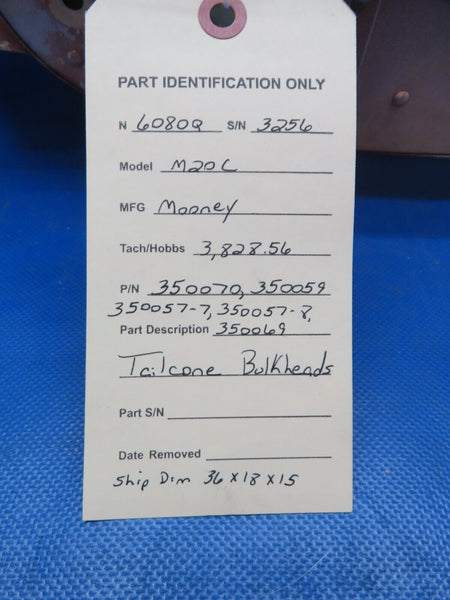 PART IDENTIFICATION ONLY
N 6080Q S/N 3256
Model M20C
MFG Mooney
Tach/Hobbs 3,828.56
P/N 350070, 350059
350057-7, 350057-8,
Part Description 350069
Tailcone Bulkheads
Part S/N
Date Removed
Ship Dim 36 x 18 x 15